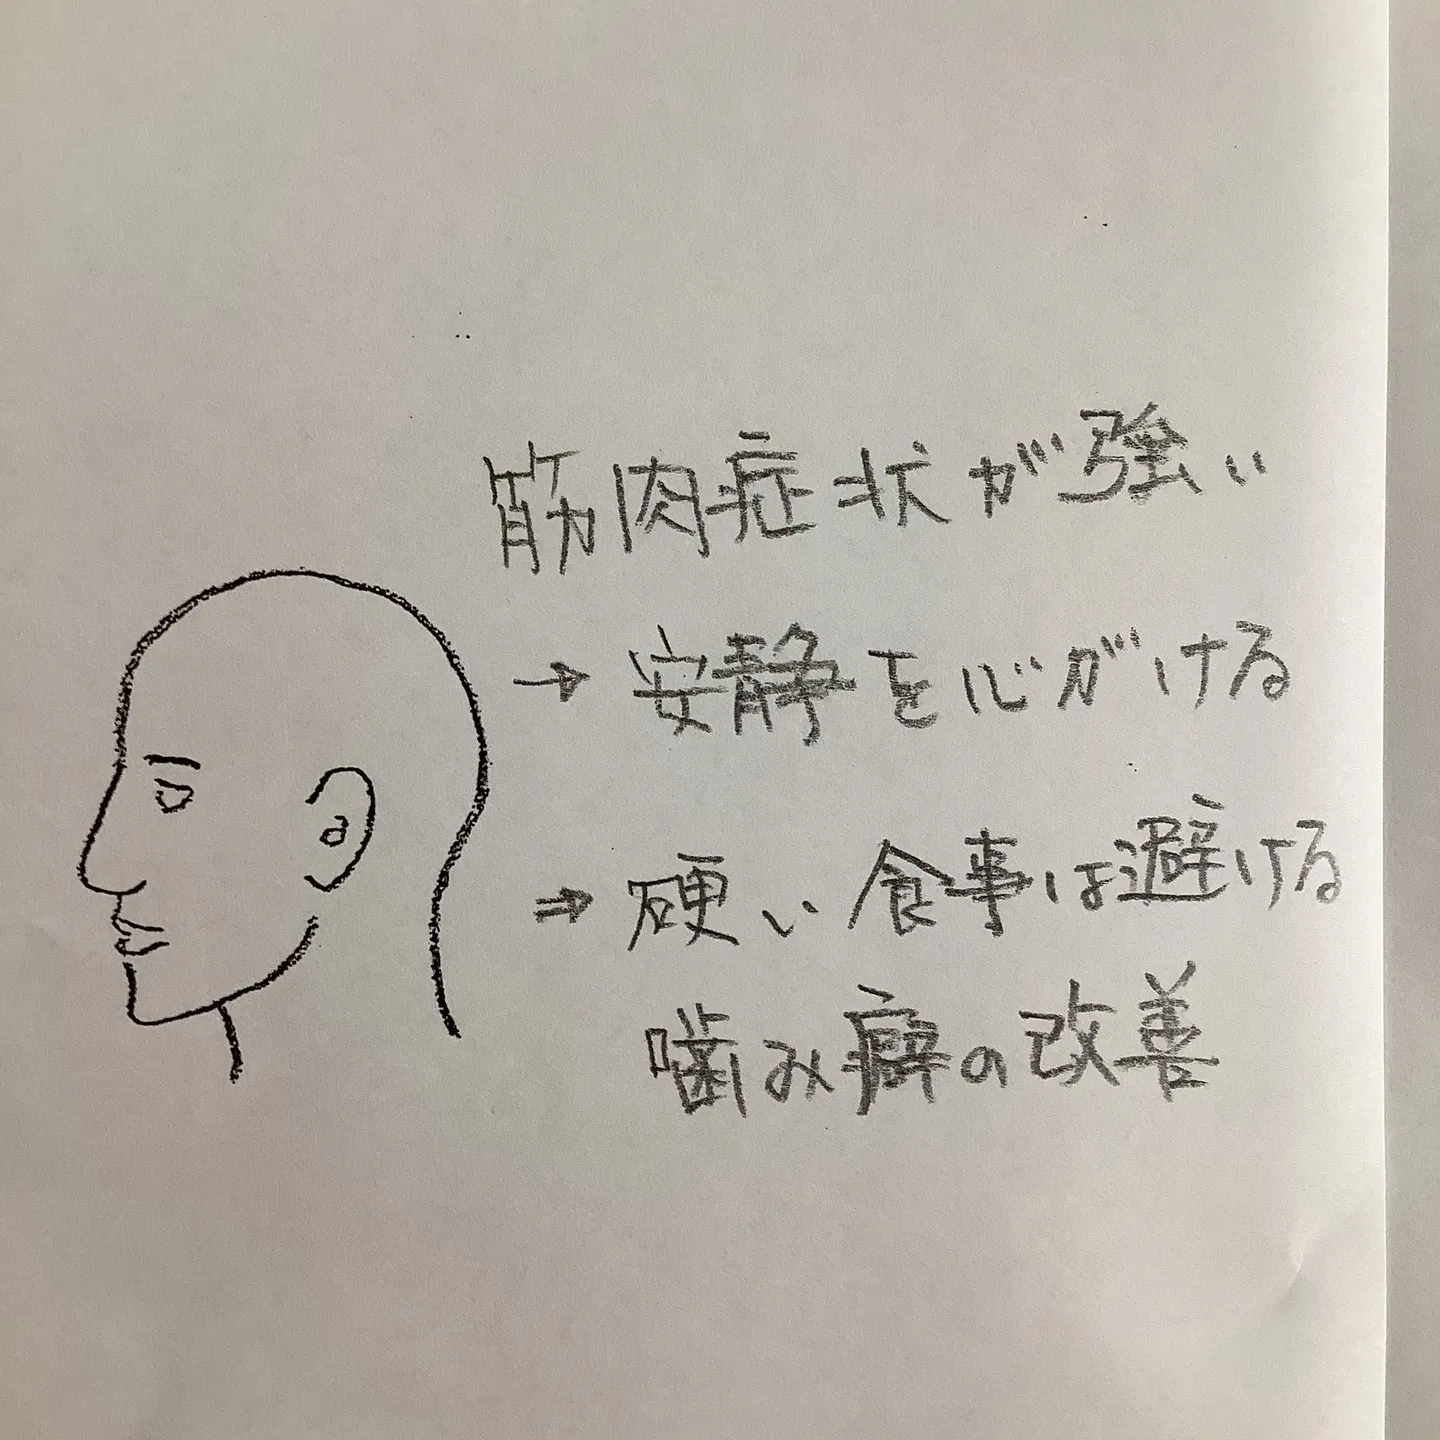 筋肉症状が強い
→ 安静を心がける
⇒ 硬い食事は避ける
噛み癖の改善